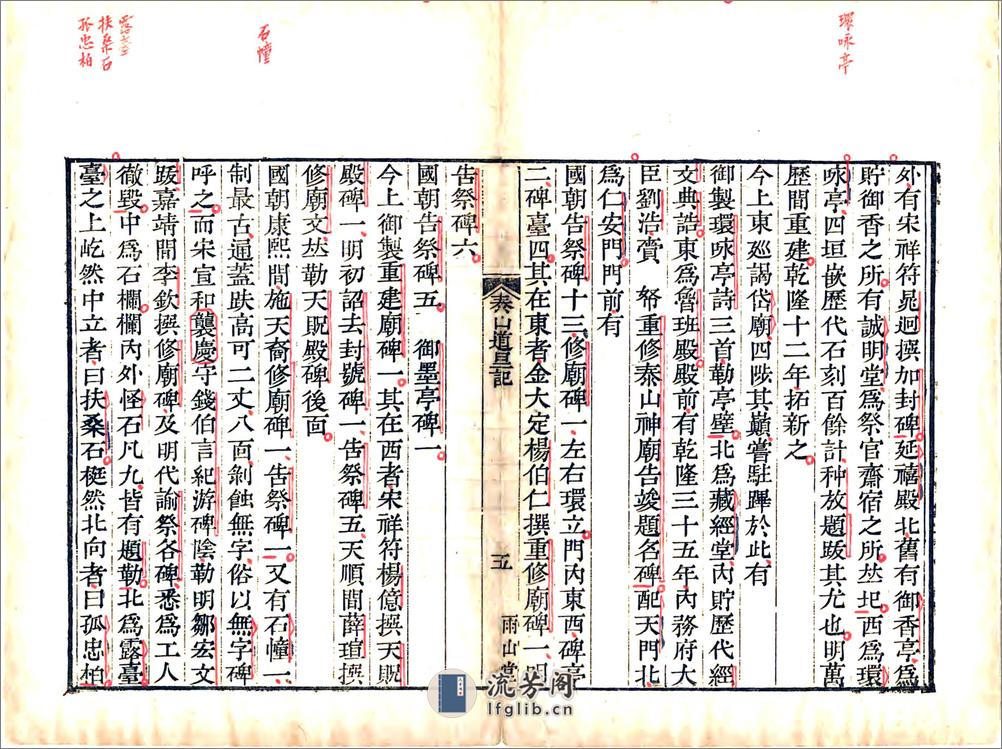 環咏亭
外有宋祥符晁迥撰加封碑延禧殿北舊有御香亭爲
貯御香之所有誠明堂爲祭官齋宿之所𠀤圮西爲環
咏亭四垣嵌歷代石刻百餘計种放題跋其尤也明萬
歷間重建乾隆十二年拓新之
今上東廵謁岱廟四陟其巔嘗駐蹕於此有
御製環咏亭詩三首勒亭壁北爲藏經堂內貯歷代經
文典誥東爲魯班殿殿前有乾隆三十五年內務府大
臣劉浩賫 帑重修泰山神廟告竣題名碑配天門北
爲仁安門門前有
國朝告祭碑十三修廟碑一左右環立門內東西碑亭
二碑臺四其在東者金大定楊伯仁撰重修廟碑一明
泰山道里記
五
雨山堂
告祭碑六
國朝告祭碑五 御墨亭碑一
今上御製重建廟碑一其在西者宋祥符楊億撰天貺
殿碑一明初詔去封號碑一告祭碑五天順間薛瑄撰
修廟文𠀤勒天貺殿碑後面
國朝康熙間施天裔修廟碑一告祭碑一又有石幢一
制最古通蓋趺高可二丈八面剝蝕無字俗以無字碑
呼之而宋宣和襲慶守錢伯言紀游碑陰勒明鄒宏文
跋嘉靖間李欽撰修廟碑及明代諭祭各碑悉爲工人
徹毀中爲石欄欄內外怪石凡九皆有題勒北爲露臺
臺之上屹然中立者曰扶桑石梃然北向者曰孤忠柏
石幢
露臺
扶桑石
孤忠柏
流芳阁
lfglib.cn